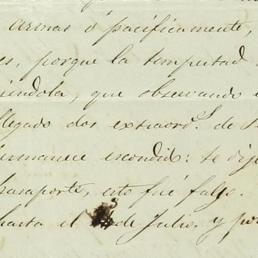 armas ó pacificamente,
es, porque la tempestad
iéndola, que observando
llegado dos extraord.s de
ermanece escondido: te dije
pasaporte, esto fué falso.
hasta el de Julio, y por